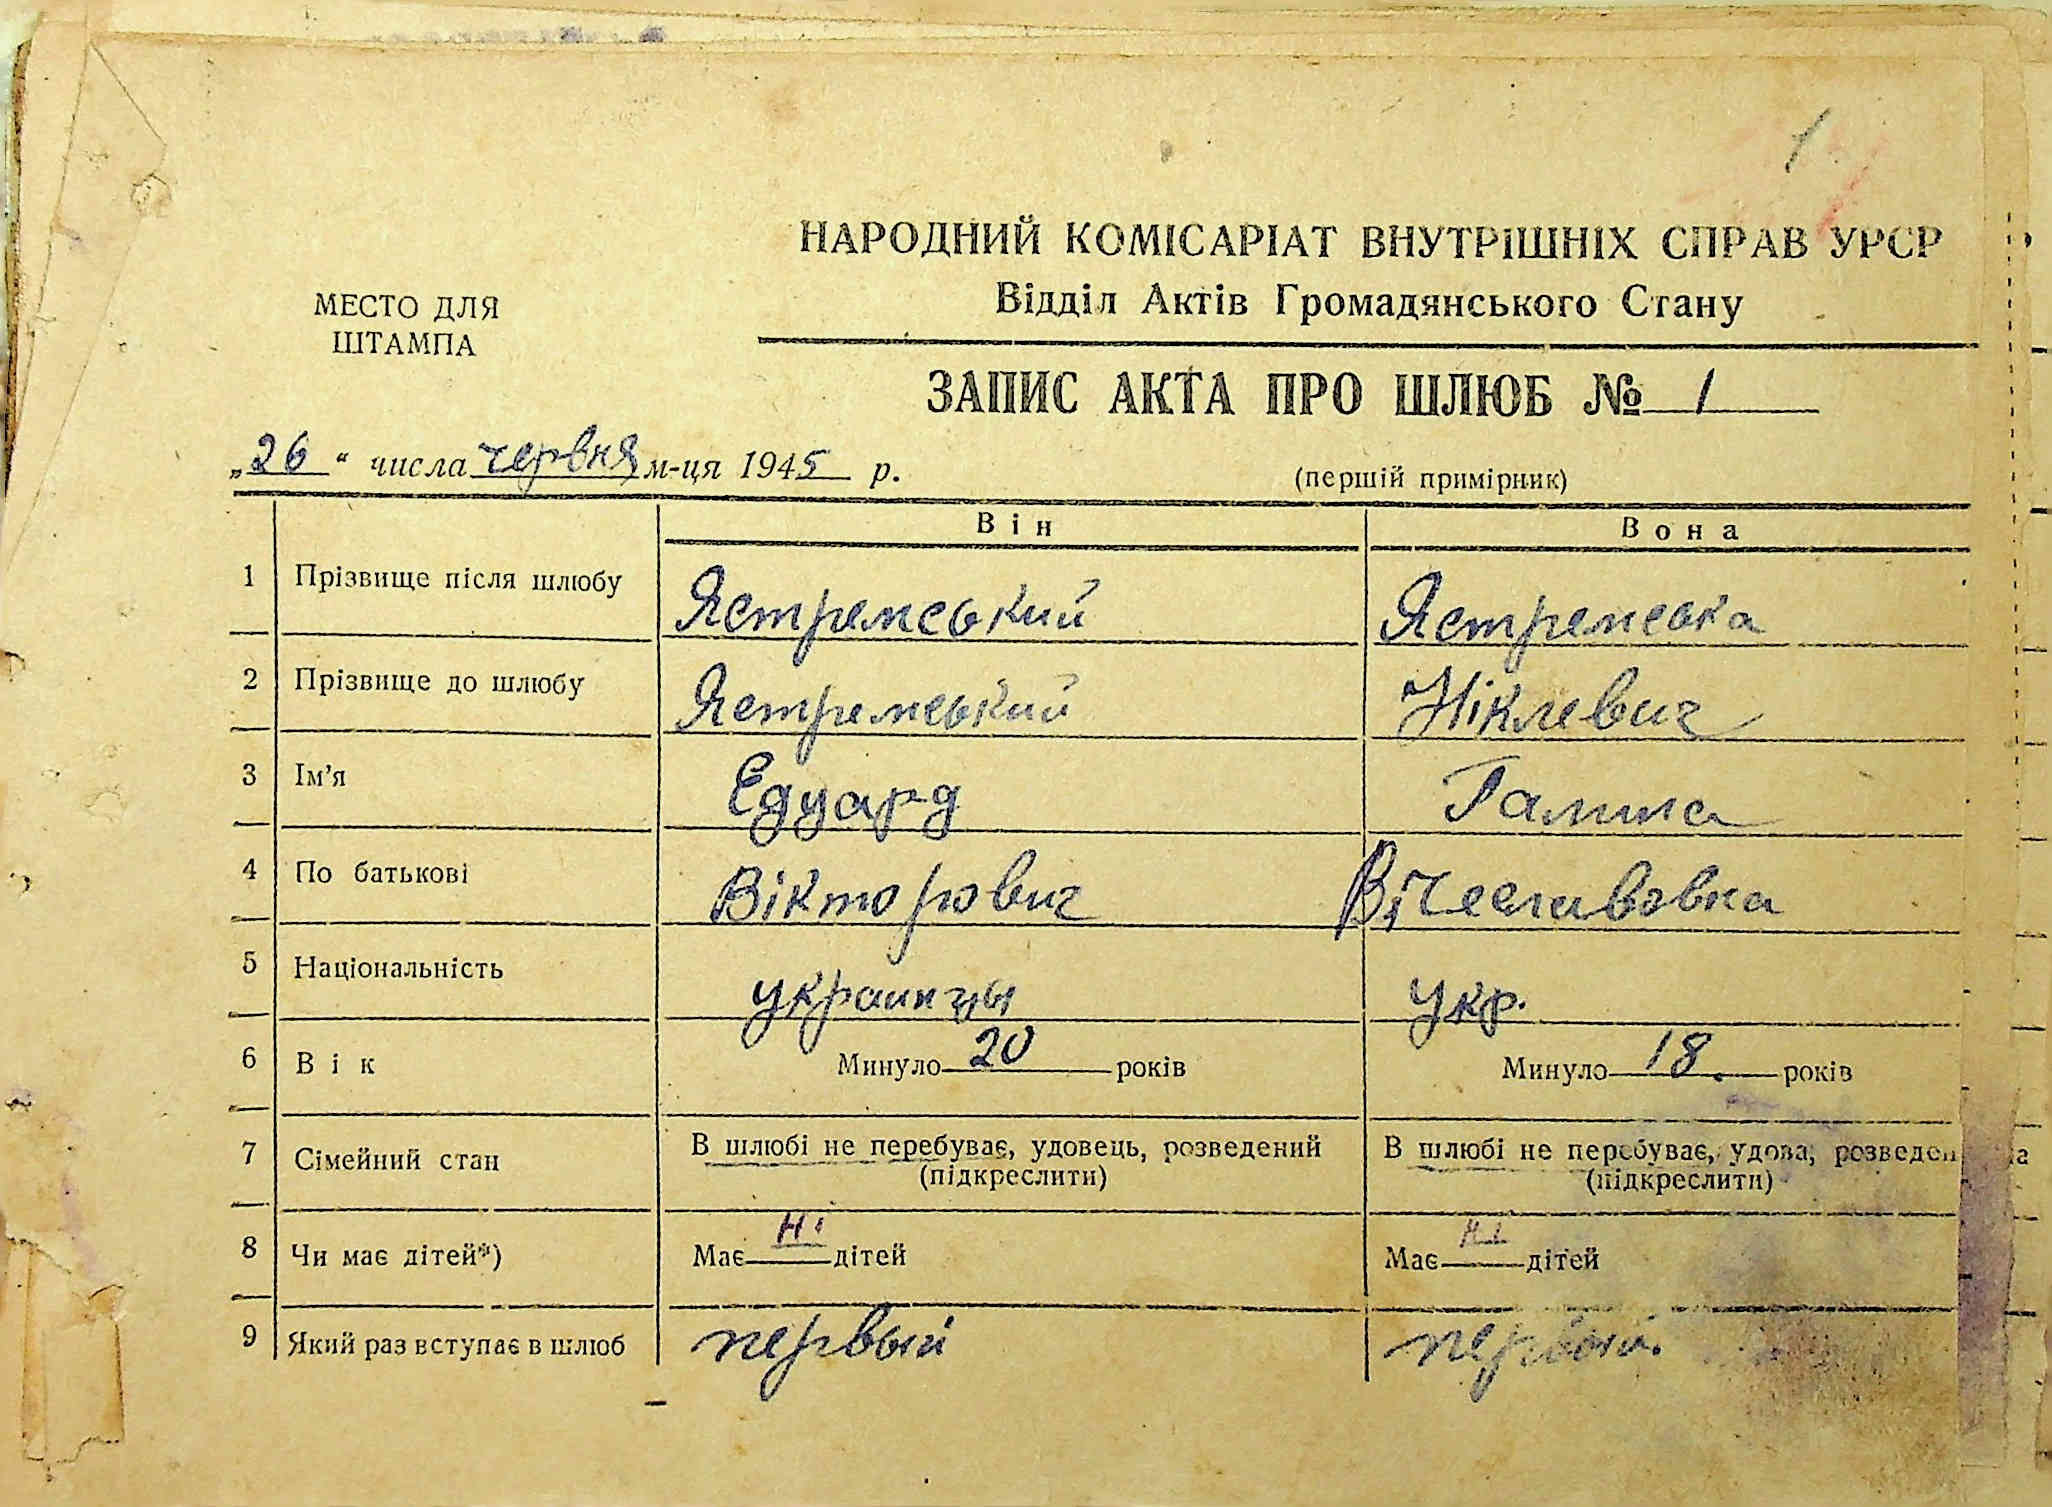 1
НАРОДНИЙ КОМІСАРІАТ ВНУТРІШНІХ СПРАВ УРСР
Відділ Актів Громадянського Стану
МЕСТО ДЛЯ
ШТАМПА
ЗАПИС АКТА ПРО ШЛЮБ № 1
„26“ числа червня м-ця 1945 р.
(першій примірник)
Він Вона
1 Прізвище після шлюбу Ястремський Ястремська
2 Прізвище до шлюбу Ястремський Ніклевич
3 Ім’я Едуард Галина
4 По батькові Вікторович Вічеславовна
5 Національність украинцы укр.
6 Вік Минуло 20 років Минуло 18. років
7 Сімейний стан В шлюбі не перебуває, удовець, розведений В шлюбі не перебуває, удова, розведен
(підкреслити) (підкреслити)
8 Чи має дітей*) Має ні дітей Має ні дітей
9 Який раз вступає в шлюб первый первый.